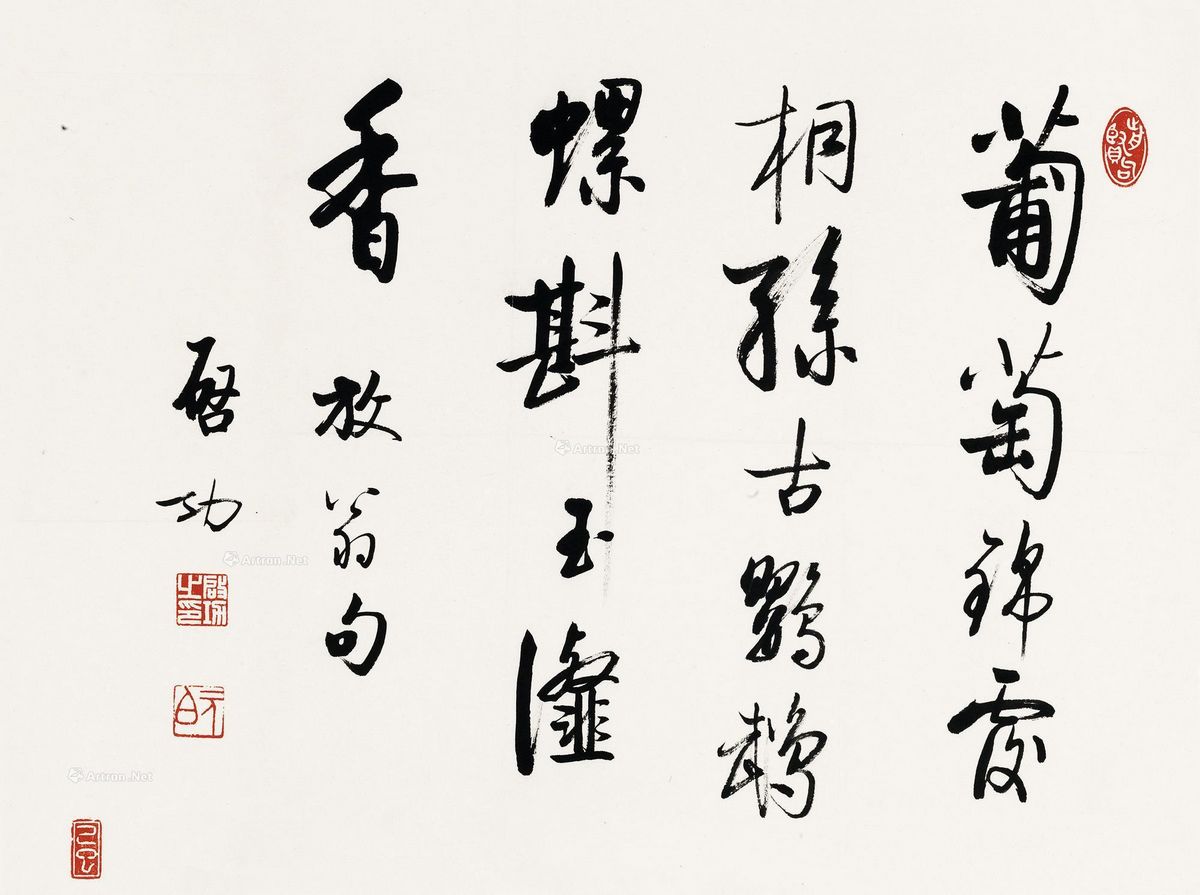 葡萄錦覆
桐孫古鸚鵡
螺斟玉瀣
香 放翁句
啓功
啓功之印
元白
Artron.Net
Artron.Net
Artron.Net